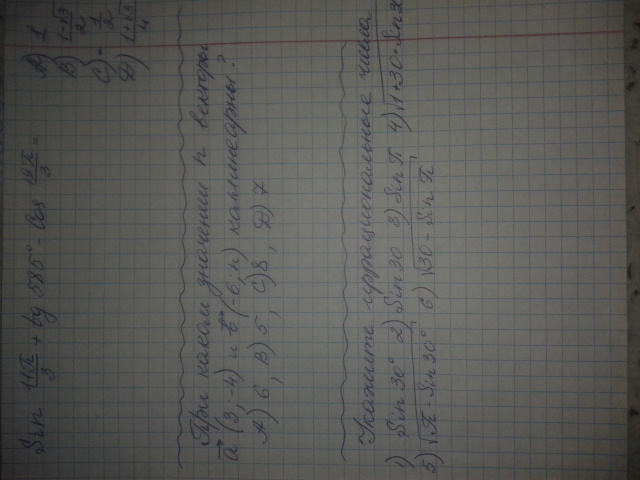 Sin 11π/3 + tg 585° - Cos 19π/3 =
A) 1
B) 1+√3/2
C) - 1/2
D) 1+√3/4
При каком значении n векторы
a (3; -4) и b (-6; n) коллинеарны?
A) 6, B) 5, C) 8, D) 7
Укажите иррациональные числа
1) Sin 30° 2) Sin 30 3) Sin π 4) √1+30·Sin
5) √π - Sin 30° 6) √30 - Sin π